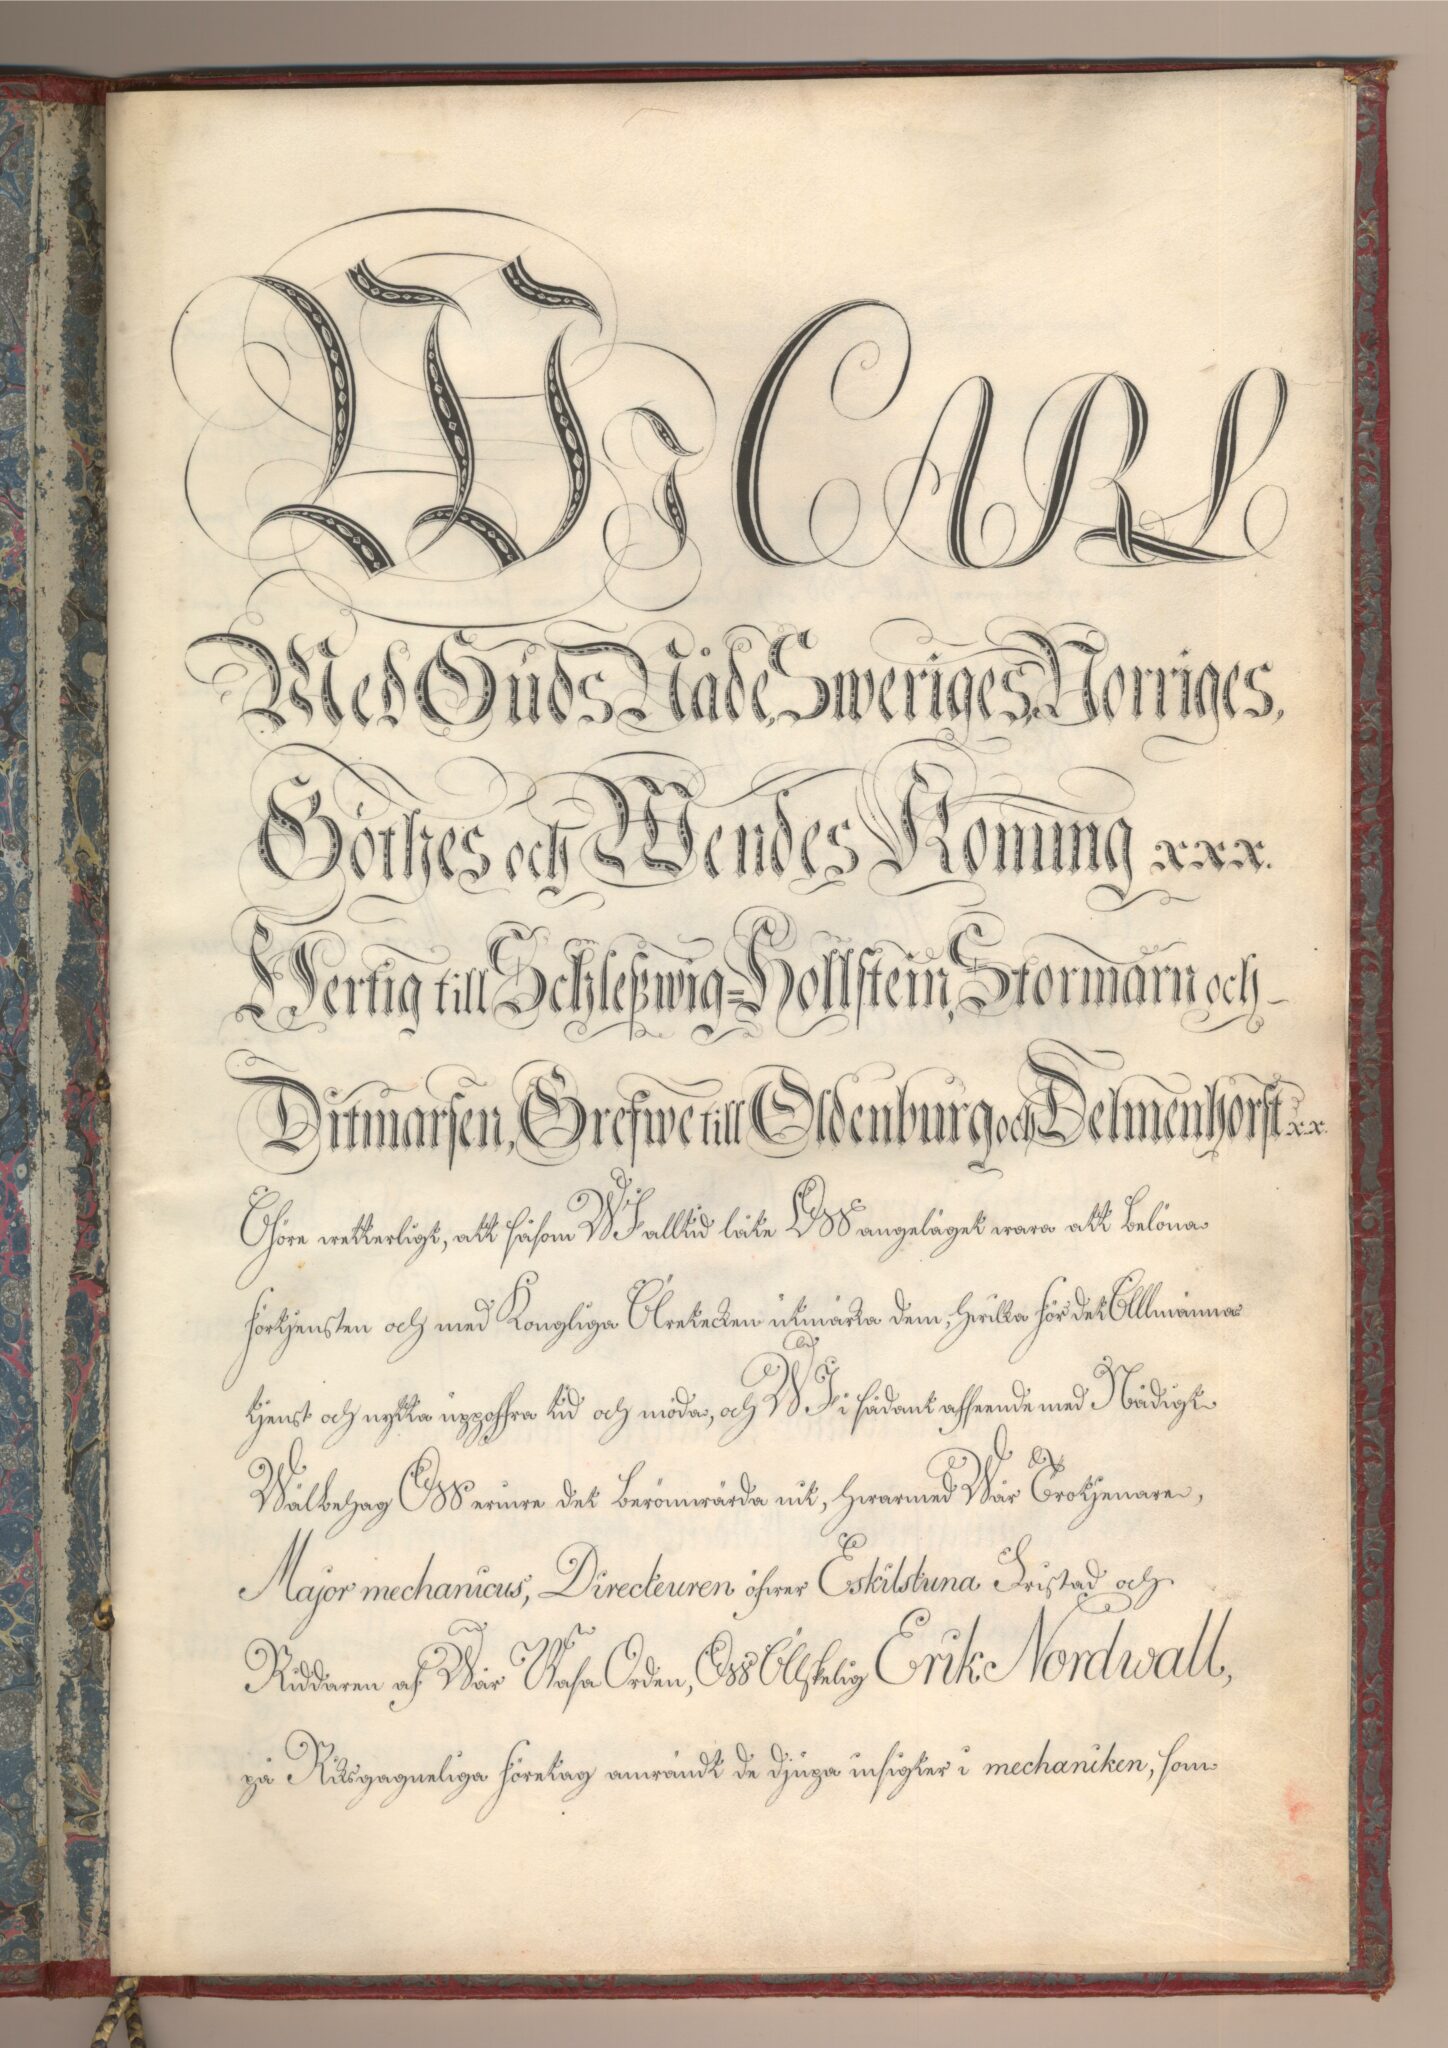 Wi CARL
Med Guds Nåde, Sweriges, Norriges,
Göthes och Wendes Konung xxx.
Hertig till Schleßwig=Hollstein, Stormarn och
Ditmarsen, Grefwe till Oldenburg och Delmenhorst xx.
Göre wetterligt, att såsom WI alltid låte Oss angeläget wara att belöna
förtjensten och med Kongliga Wretecken utmärka dem, hwilka för det Allmänna
tjenst och nytta uppoffra tid och möda, och WI i sådant afseende med Nådigt
Wälbehag Oss erinre det berömwärda nit, hwarmed Wår Trotjenare,
Major mechanicus, Directeuren öfwer Eskilstuna Fristad och
Riddaren af Wår Wasa Orden, Oss Älskelig Erik Nordwall,
på Riksgagneliga företag användt de djupa insigter i mechaniken, som